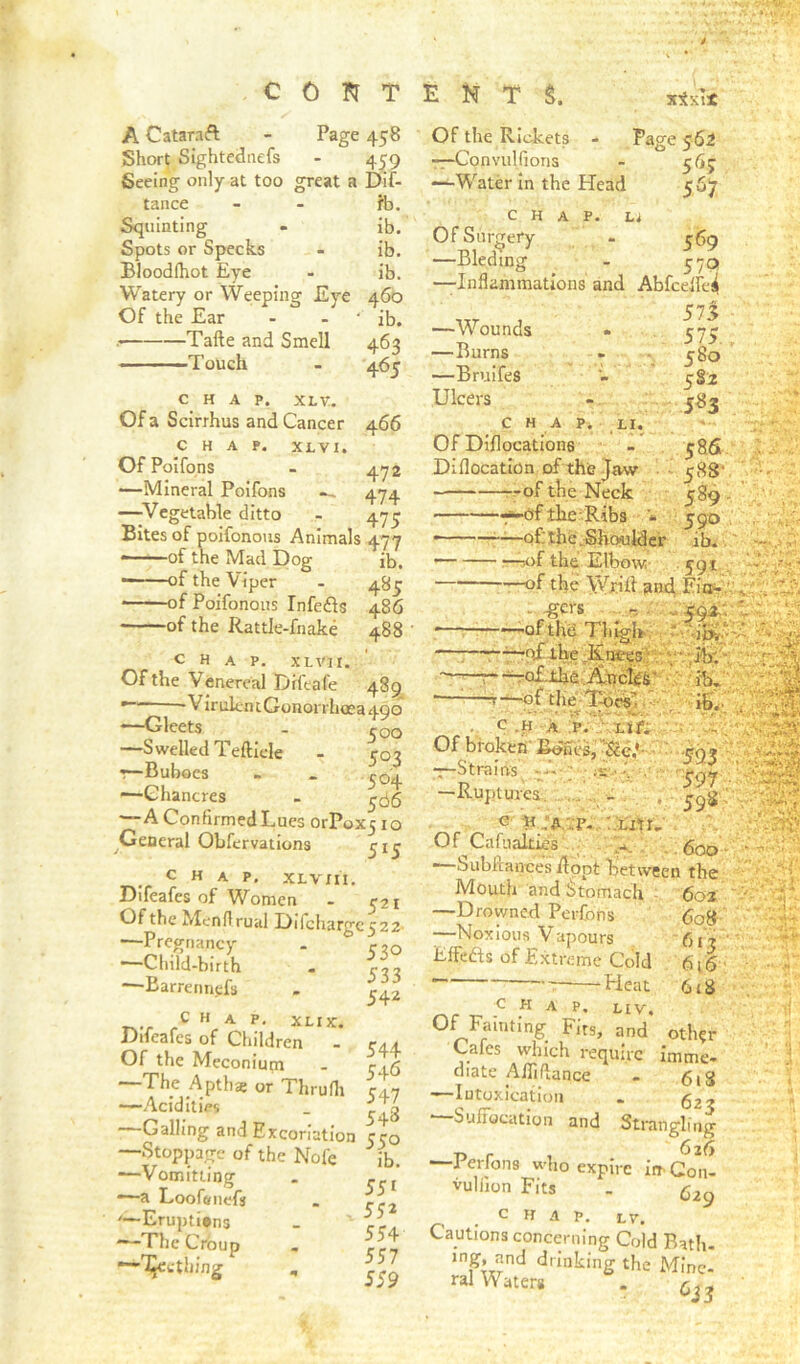 CONTENTS. xlix
A Cataract - Page 458
Short Sightedneſs - 459
Seeing only at too great a Diſ-
tance - - ib.
Squinting - ib.
Spots or Specks - ib.
Bloodſhot Eye - ib.
Watery or Weeping Eye 460
Of the Ear - - ib.
——Taſte and Smell 463
——Touch - 465
CHAP. XLV.
Of a Scirrhus and Cancer 466
CHAP. XLVI.
Of Poiſons - 472
—Mineral Poiſons - 474
—Vegetable ditto - 475
Bites of poiſonous Animals 477
——of the Mad Dog ib.
——of the Viper - 485
——of Poiſonous Inſects 486
——of the Rattle-ſnake 488
CHAP. XLVII.
Of the Venereal Diſeaſe 489
——VirulentGonorrhœa490
—Gleets - 500
—Swelled Teſticle - 503
—Buboes - - 504
—Chancres - 506
—A Confirmed Lues orPox510
General Obſervations 515
CHAP. XLVIII.
Diſeaſes of Women - 521
Of the Menſtrual Diſcharge522
—Pregnancy - 530
—Child-birth - 533
—Barrenneſs - 542
CHAP. XLIX.
Diſeaſes of Children - 544
Of the Meconium - 546
—The Apthæ or Thruſh 547
—Acidities - 548
—Galling and Excoriation 550
—Stoppage of the Noſe ib.
—Vomitting - 551
—a Looſeneſs - 552
—Eruptions - 554
—The Croup - 557
—Teething - 559
Of the Rickets - Page 562
—Convulſions - 565
—Water in the Head 567
CHAP. L.
Of Surgery - 569
—Bleeding - 570
—Inflammations and Abſceſſes
573
—Wounds - 575
—Burns - 580
—Bruiſes - 582
Ulcers - 583
CHAP. LI.
Of Diſlocations - 586
Diſlocation of the Jaw - 588
——of the Neck 589
——of the Ribs - 590
——of the Shoulder ib.
——of the Elbow 591
——of the Wriſt and Fin-
gers - 592
——of the Thigh ib.
——of the Knees ib.
——of the Ancles ib.
——of the Toes ib.
CHAP. LII.
Of broken Bones, &c. 593
—Strains - - 597
—Ruptures - 598
CHAP. LIII.
Of Caſualties - 600
—Subſtances ſtopt between the
Mouth and Stomach - 602
—Drowned Perſons 608
—Noxious Vapours 613
Effects of Extreme Cold 616
——Heat 618
CHAP. LIV.
Of Fainting Fits, and other
Caſes which require imme-
diate Aſſiſtance - 618
—Intoxication - 623
—Suffocation and Strangling
626
—Perſons who expire in Con-
vulſion Fits - 629
CHAP. LV.
Cautions concerning Cold Bath-
ing, and drinking the Mine-
ral Waters - 633